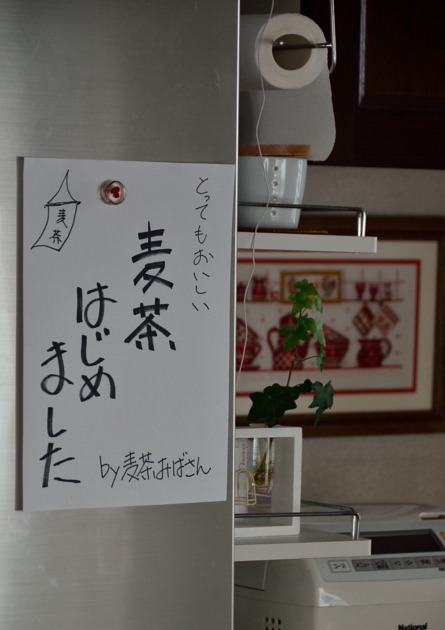 とってもおいしい
麦茶、
はじめ
ました
by麦茶おばさん
麦茶
National